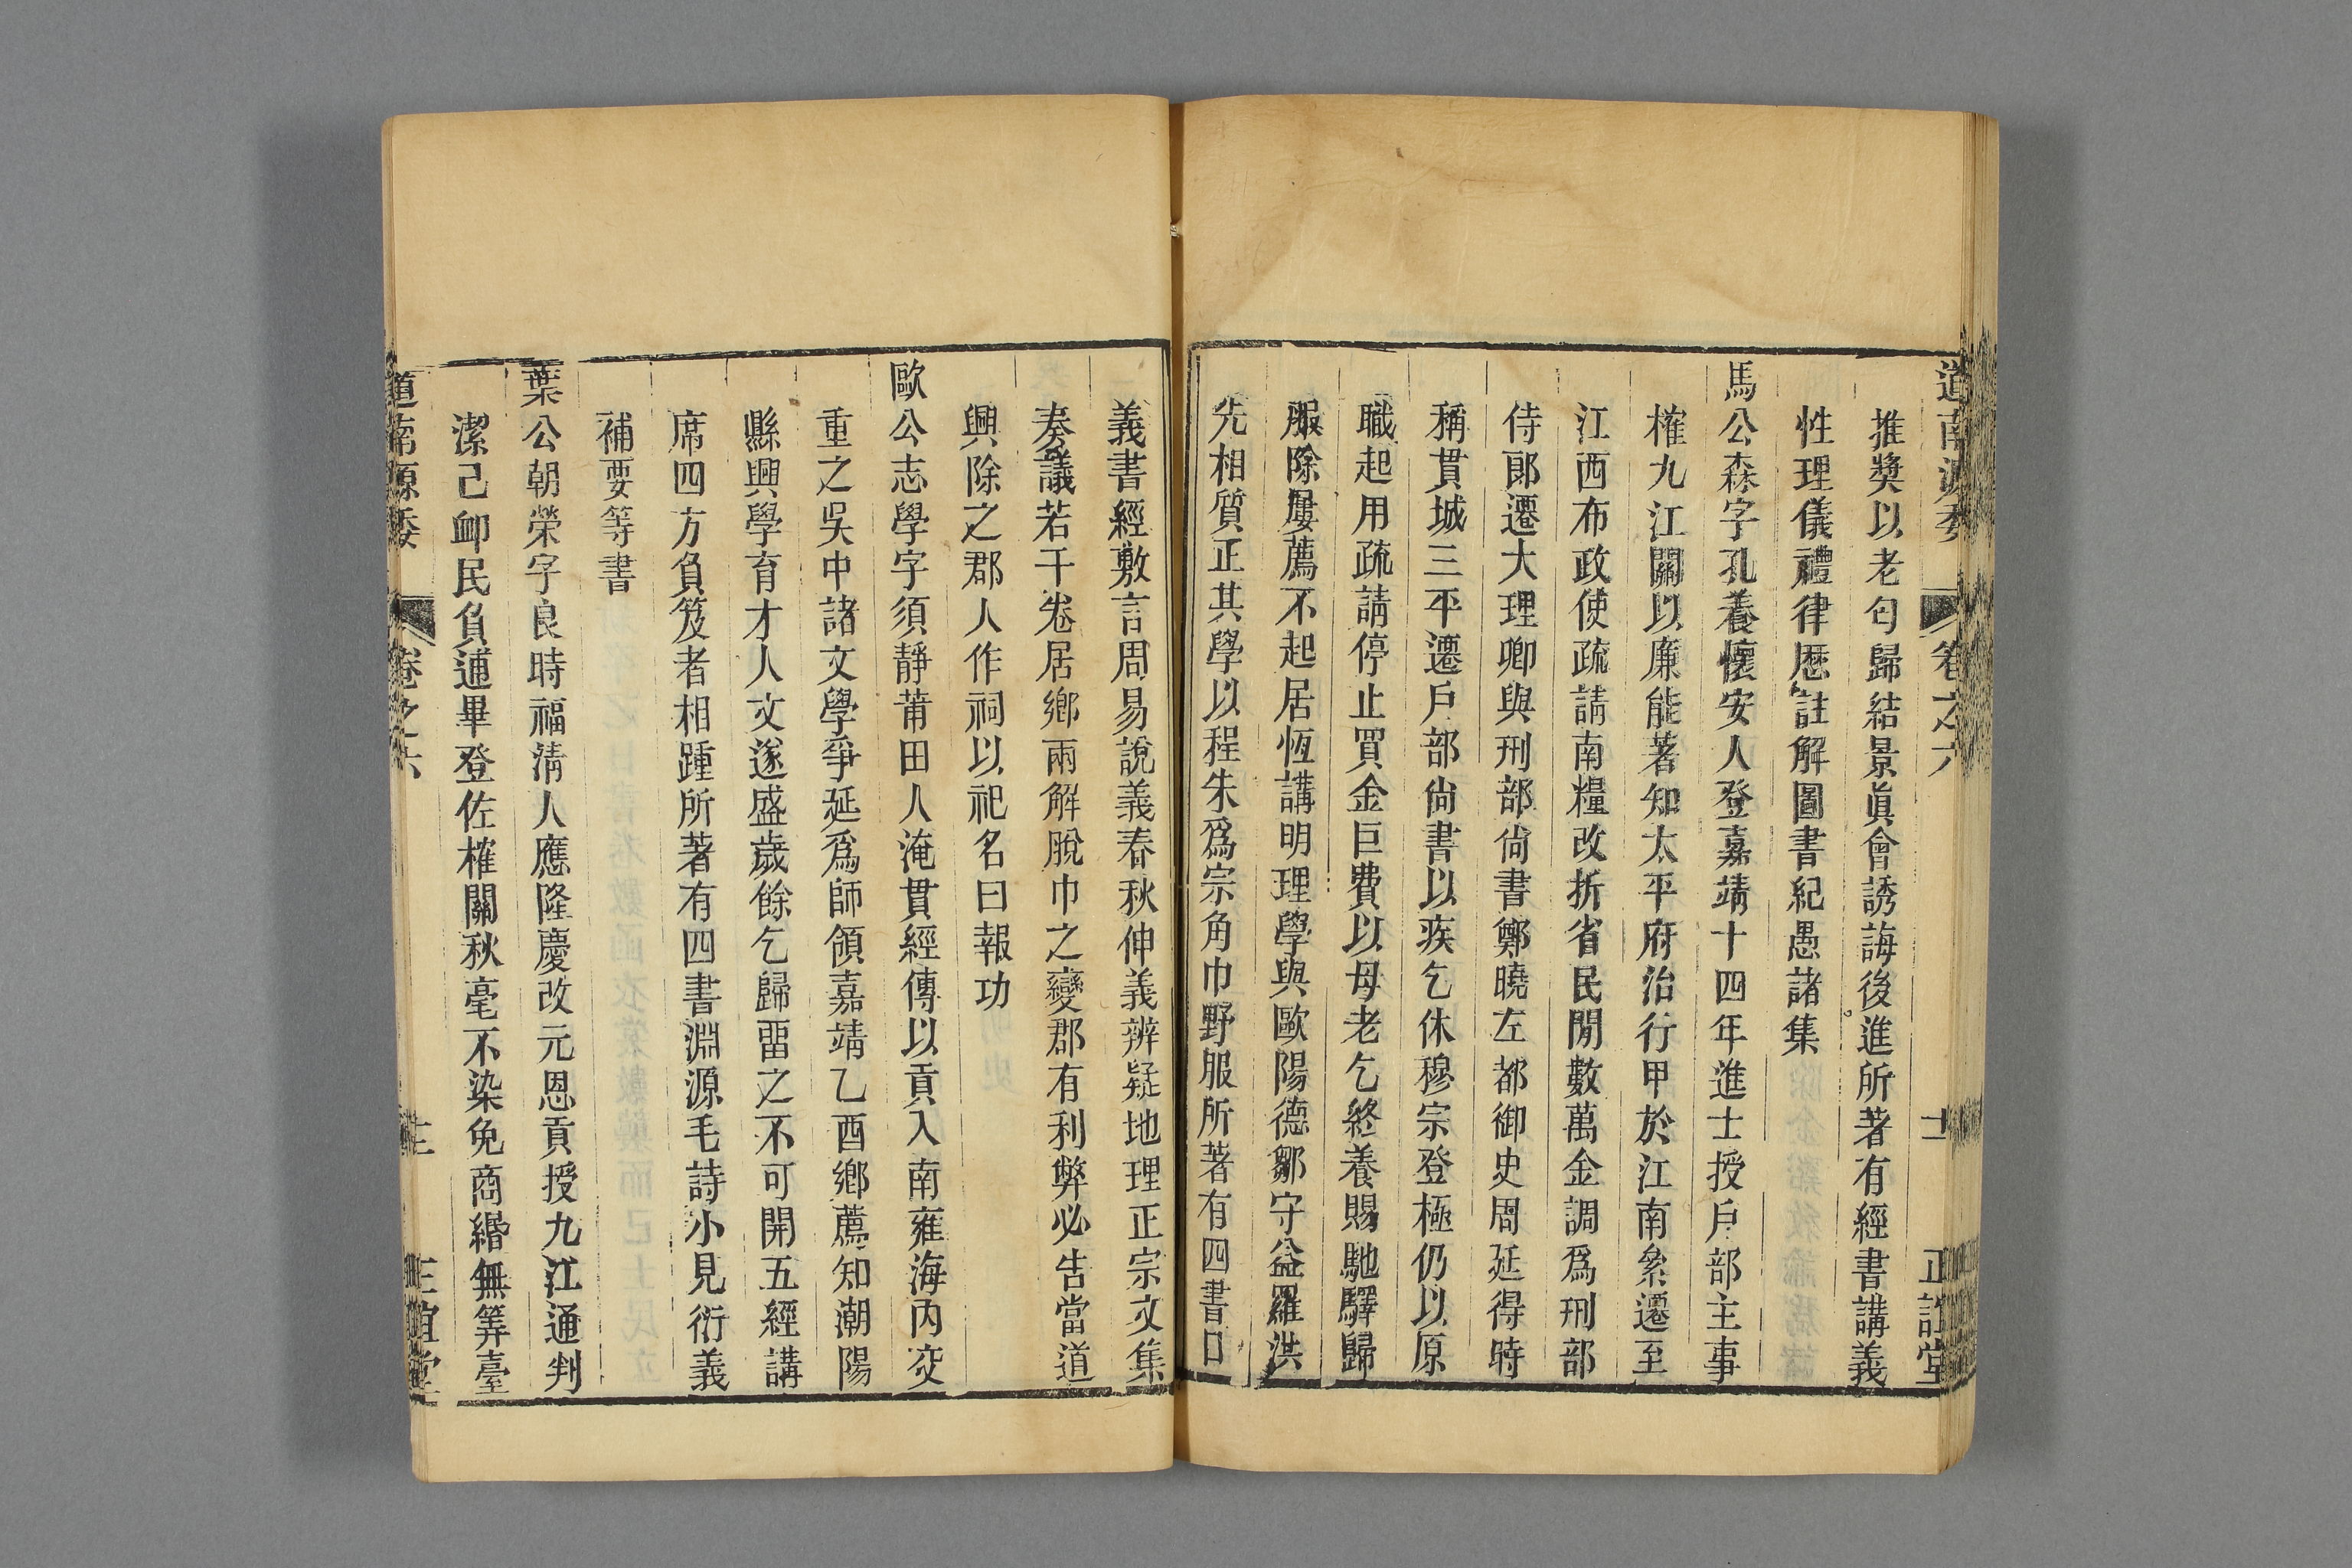 道南源委 卷之六 正誼堂
推獎以老匄歸結景眞會誘誨後進所著有經書講義
性理儀禮律歷註解圖書紀愚諸集
馬公森字孔養懷安人登嘉靖十四年進士授戶部主事
榷九江關以廉能著知太平府治行甲於江南纍遷至
江西布政使疏請南糧改折省民閒數萬金調爲刑部
侍郎遷大理卿與刑部尙書鄭曉左都御史周延得時
稱貫城三平遷戶部尙書以疾乞休穆宗登極仍以原
職起用疏請停止買金巨費以母老乞終養賜馳驛歸
服除屢薦不起居恆講明理學與歐陽德鄒守益羅洪
先相質正其學以程朱爲宗角巾野服所著有四書口
義書經敷言周易說義春秋伸義辨疑地理正宗文集
奏議若干卷居鄉兩解脫巾之變郡有利弊必告當道
興除之郡人作祠以祀名曰報功
歐公志學字須靜莆田人淹貫經傳以貢入南雍海內交
重之吳中諸文學爭延爲師領嘉靖乙酉鄉薦知潮陽
縣興學育才人文遂盛歲餘乞歸畱之不可開五經講
席四方負笈者相踵所著有四書淵源毛詩小見衍義
補要等書
葉公朝榮字良時福淸人應隆慶改元恩貢授九江通判
潔己卹民負逋畢登佐榷關秋毫不染免商緡無筭臺
道南源委 卷之六 正誼堂